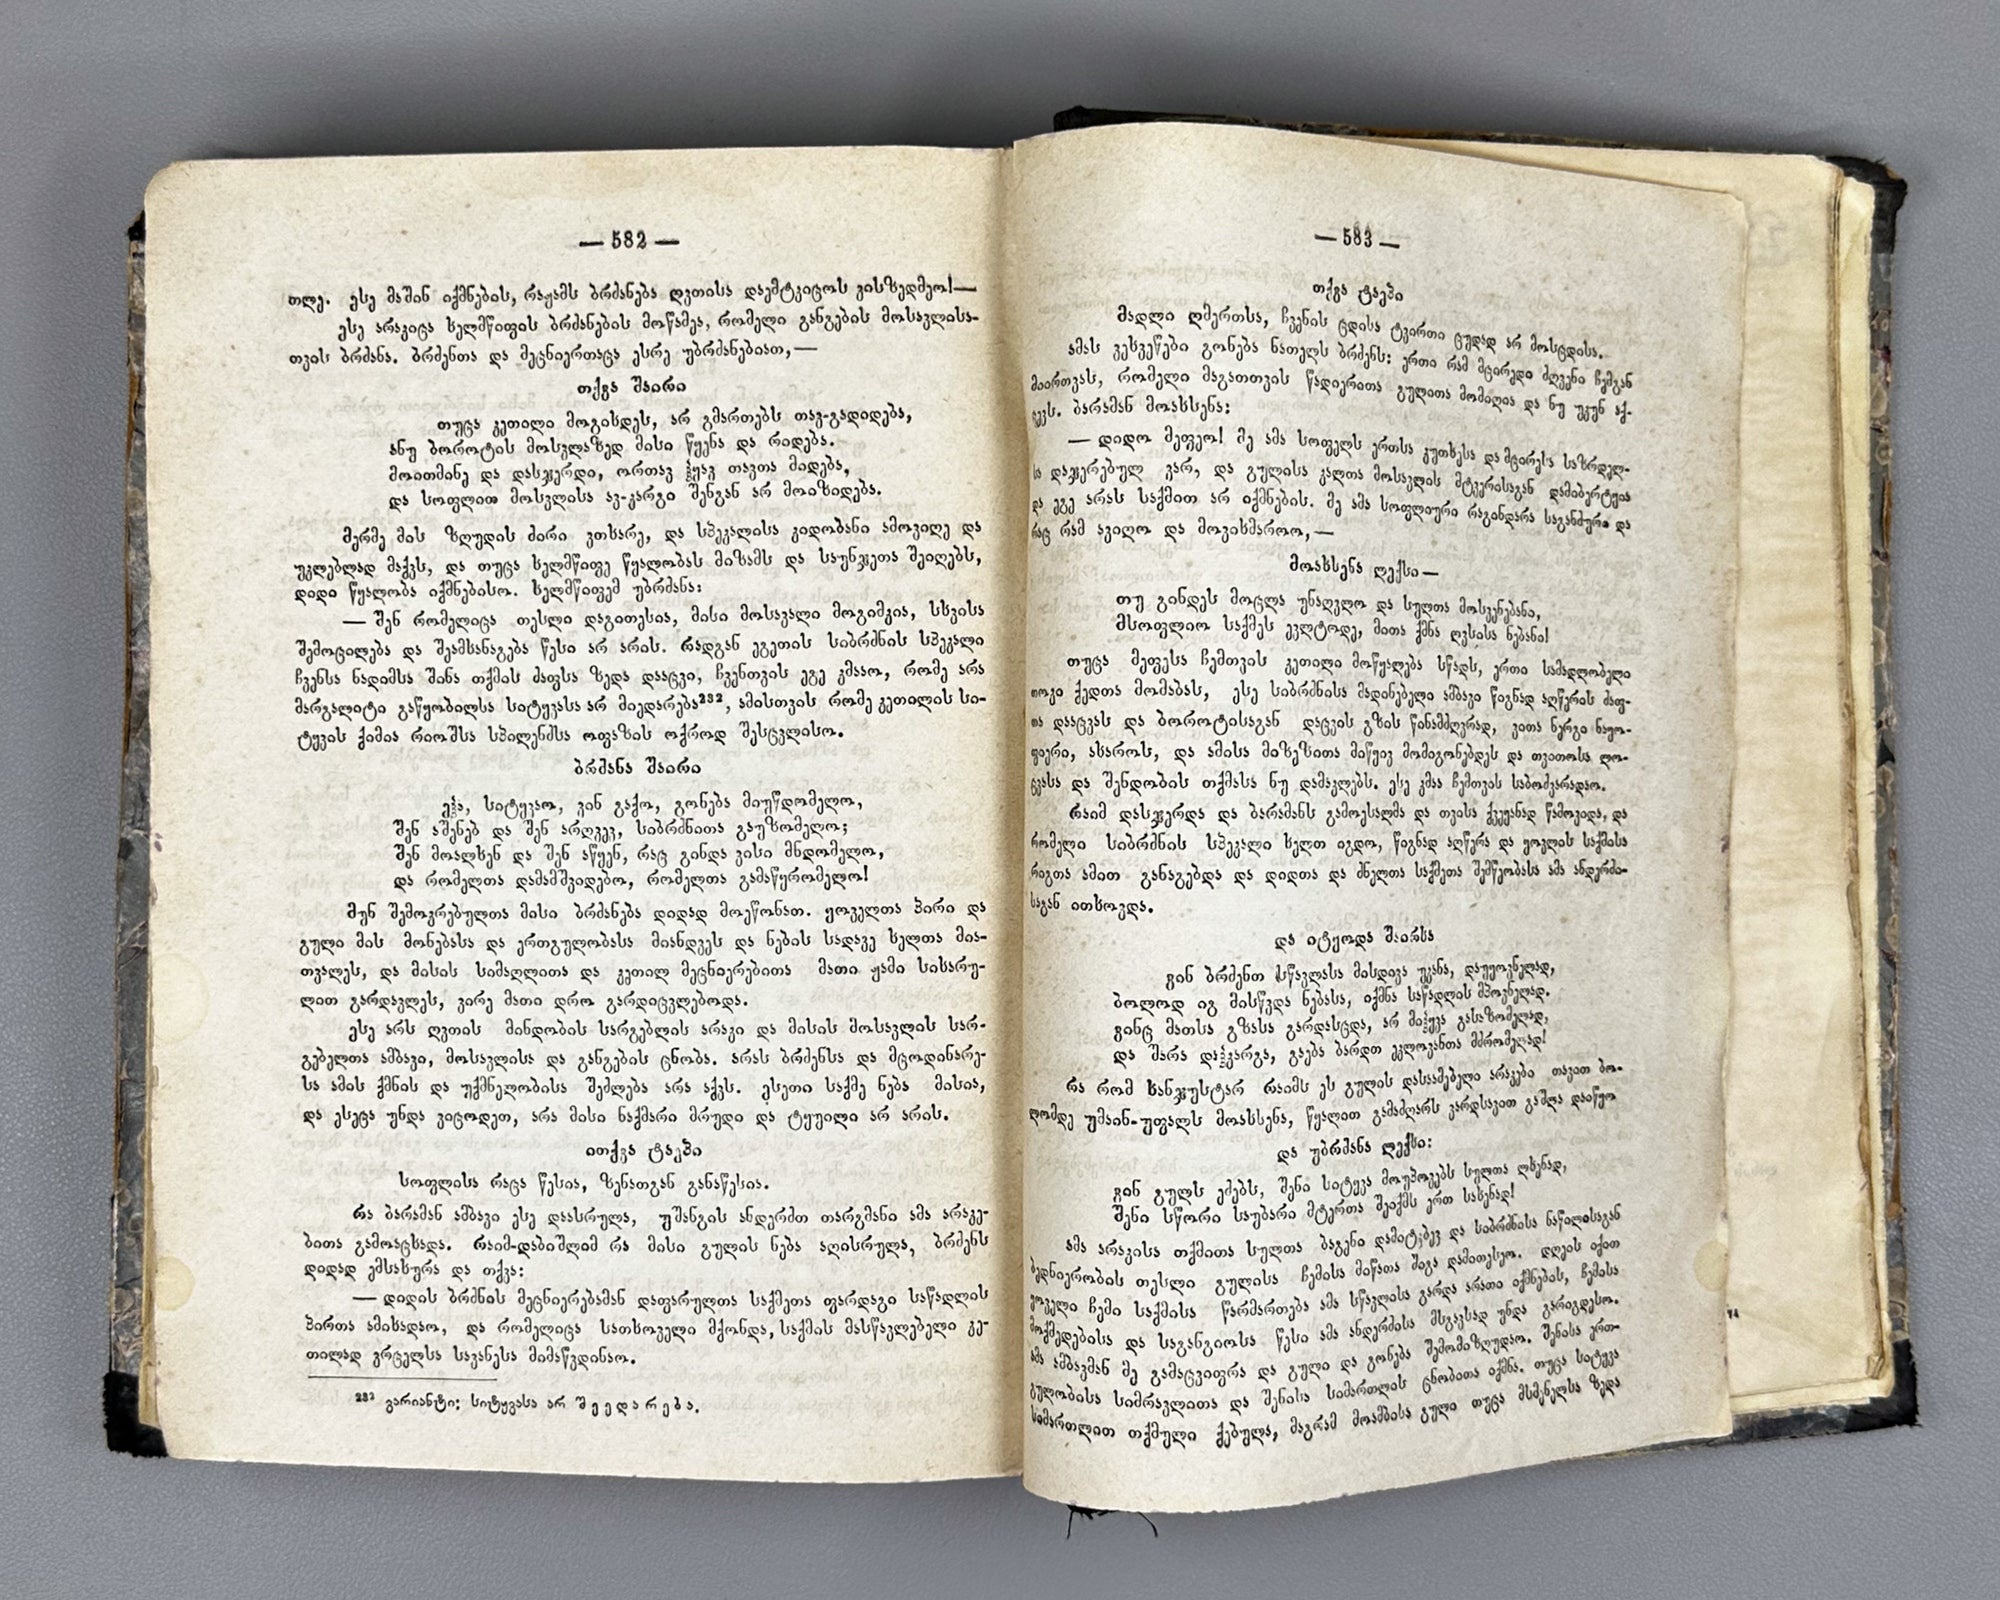 — 582 —
თლე. ესე მაშინ იქმნების, რაჟამს ბრძანება ღვთისა დაემტკიცოს ვისზედმეო!—
ესე არაკიცა ხელმწიფის ბრძანების მოწამეა, რომელი განგების მოსავლისა-
თვის ბრძანა. ბრძენთა და მეცნიერთაცა ესრე უბრძანებიათ,—
თქვა შაირი
თუცა კეთილი მოგისდეს, არ გმართებს თავ-გადიდება,
ანუ ბოროტის მოსვლაზედ მისი წყენა და რიდება.
მოითმინე და დასჯერდი, ორთავ ჰყავ თავთა მიდება,
და სოფლით მოსვლისა ავ-კარგი შენგან არ მოიზიდება.
მერმე მის ზღუდის ძირი ვთხარე, და სპეკალისა კიდობანი ამოვიღე და
უკლებლად მაქვს, და თუცა ხელმწიფე წყალობას მიზამს და საუნჯეთა შეიღებს,
დიდი წყალობა იქმნებისო. ხელმწიფემ უბრძანა:
— შენ რომელიცა თესლი დაგითესია, მისი მოსავალი მოგიმკია, სხვისა
შემოცილება და შეამხანაგება წესი არ არის. რადგან ეგეთის სიბრძნის სპეკალი
ჩვენსა ნადიმსა შინა თქმის ძაფსა ზედა დააცვი, ჩვენთვის ეგე კმააო, რომე არა
მარგალიტი გაწყობილსა სიტყვასა არ მიედარება²³², ამისთვის რომე კეთილის სი-
ტყვის ქიმია რიოშსა სპილენძსა ოფაზის ოქროდ შესცვლისო.
ბრძანა შაირი
ეჰა, სიტყვაო, ვინ გაქო, გონება მიუწდომელო,
შენ აშენებ და შენ არღვევ, სიბრძნითა გაუზომელო;
შენ მოალხენ და შენ აწყენ, რაც გინდა ვისი მნდომელო,
და რომელთა დამამშვიდებო, რომელთა გამაწყრომელო!
მუნ შემოკრებულთა მისი ბრძანება დიდად მოეწონათ. ყოველთა პირი და
გული მის მონებასა და ერთგულობასა მიანდვეს და ნების სადავე ხელთა მია-
თვალეს, და მისის სიმაღლითა და კეთილ მეცნიერებითა მათი ჟამი სიხარუ-
ლით გარდავლეს, ვირე მათი დრო გარდიცვლებოდა.
ესე არს ღვთის მინდობის სარგებლის არაკი და მისის მოსავლის სარ-
გებელთა ამბავი, მოსავლისა და განგების ცნობა. არას ბრძენსა და მცოდინარე-
სა ამის ქმნის და უქმნელობისა შეძლება არა აქვს. ესეთი საქმე ნება მისია,
და ესეცა უნდა ვიცოდეთ, არა მისი ნაქმარი მრუდი და ტყუილი არ არის.
ითქვა ტაეპი
სოფლისა რაცა წესია, ზენათგან განაწესია.
რა ბარამან ამბავი ესე დაასრულა, უშანგის ანდერძთ თარგმანი ამა არაკე-
ბითა გამოაცხადა. რაიმ-დაბიშლიმ რა მისი გულის ნება აღისრულა, ბრძენს
დიდად ემსახურა და თქვა:
— დიდის ბრძნის მეცნიერებამან დაფარულთა საქმეთა ფარდაგი საწადლის
პირთა ამიხადაო, და რომელიცა სათხოველი მქონდა, საქმის მასწავლებელი კე-
თილად ვრცელსა სავანესა მიმაწვდინაო.
²³² ვარიანტი: სიტყვასა არ შეედარება.
— 583 —
თქვა ტაეპი
მადლი ღმერთსა, ჩვენის ცდისა ტვირთი ცუდად არ მოსცდისა.
ამას ვეხვეწები გონება ნათელს ბრძენს: ერთი რამ მცირედი ძღვენი ჩემგან
მიართვას, რომელი მაგათთვის წადიერითა გულითა მომიღია და ნუ უკუნ აქ-
ცევს. ბარამან მოახსენა:
— დიდო მეფეო! მე ამა სოფელს ერთსა კუთხესა და მცირესა საზრდელ-
სა დაჯერებულ ვარ, და გულისა კალთა მოსავლის მტვერისაგან დამიბერტყია
და ეგე არას საქმით არ იქმნების. მე ამა სოფლიური რაგინდარა საგანძური და
რაც რამ ავიღო და მოვიხმაროო,—
მოახსენა ლექსი—
თუ გინდეს მოცლა უნაღვლო და სულთა მოსვენებანი,
მსოფლიო საქმეს ევლტოდე, მითა ქმნა ღვთისა ნებანი!
თუცა მეფესა ჩემთვის კეთილი მოწყალება სწადს, ერთი სამადლობელი
თოკი ქედთა მომაბას, ესე სიბრძნისა მადინებელი ამბავი წიგნად აღწერის ძაფ-
თა დააცვას და ბოროტისაგან დაცვის გზის წინამძღვრად, ვითა ნერგი ნაყო-
ფიერი, ახაროს, და ამისა მიზეზითა მიწყივ მომიგონებდეს და თვითოსა ლო-
ცვასა და შენდობის თქმასა ნუ დამაკლებს. ესე კმაა ჩემთვის საბოძვარადაო.
რაიმ დასჯერდა და ბარამანს გამოესალმა და თვისა ქვეყანად წამოვიდა, და
რომელი სიბრძნის სპეკალი ხელთ იგდო, წიგნად აღწერა და ყოვლის საქმისა
რიგთა ამით განაგებდა და დიდთა და ძნელთა საქმეთა შემწეობასა ამა ანდერძი-
საგან ითხოვდა.
და იტყოდა შაირსა
ვინ ბრძენთ სწავლასა მისდივა უკანა, დაუყოვნელად,
ბოლოდ იგ მისწვდა ნებასა, იქმნა საწადლის მპოვნელად.
ვინც მათსა გზასა გარდასცდა, არ მიჰყვა გასაზომელად,
და შარა დაჰკარგა, გაება ბარდთ ეკლოვანთა მძრომელად!
რა რომ ხანჯუსტარ რაიმს ეს გულის დასაამებელი არაკები თავით ბო-
ლომდე უმაინ-უფალს მოახსენა, წყალით გამაძღარს ვარდსავით გაშლა დაიწყო
და უბრძანა ლექსი:
ვინ გულს ეძებს, შენი სიტყვა მოუპოვებს სულთა ლხენად,
შენი სწორი საუბარი მტერთა შეიქმს ერთ სახენად!
ამა არაკისა თქმითა სულთა ბაგენი დამიტკბევ და სიბრძნისა ნაწილისაგან
ბედნიერობის თესლი გულისა ჩემისა მიწათა შიგა დამითესეო. დღეის იქით
ყოველი ჩემი საქმისა წარმართება ამა სწავლისა გარდა არათი იქმნების, ჩემისა
მოქმედებისა და საგანგიოსა წესი ამა ანდერძისა მსგავსად უნდა გარიგდესო.
ამა ამბავმან მე გამაცვიფრა და გული და გონება შემომიზღუდაო. შენისა ერთ-
გულობისა სიმრავლითა და შენისა სიმართლის ცნობითა იქმნა. თუცა სიტყვა
სიმართლით თქმული ქებულა, მაგრამ მოამბისა გული თუცა მსმენელსა ზედა
74